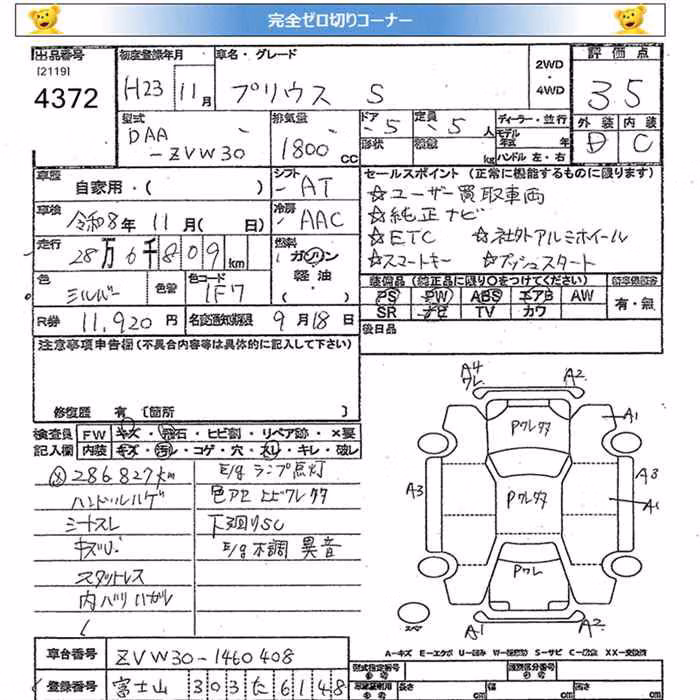 完全ゼロ切りコーナー
出品番号 初度登録年月 車名・グレード 2WD・4WD 評価点
[2119]
4372 H23 11月 プリウス S 3.5
型式 排気量 ドア 定員 ディーラー・並行 外装 内装
DAA-ZVW30 1800cc 5 5人 モデル年式 年 D C
形状 積量 kg ハンドル 左・右
車歴 自家用・( ) シフト AT セールスポイント (正常に機能するものに限ります)
☆ユーザー買取車両
車検 令和8年 11月( 日) 冷房 AAC ☆純正ナビ
走行 28万6千809km 燃料 ガソリン・軽油・ ☆ETC ☆社外アルミホイール
☆スマートキー ☆プッシュスタート
色 シルバー 色替 色コード 1F7 装備品 (純正品に限り○をつけてください)
PS PW ABS エアB AW 有・無
R券 11,920円 名変通知期限 9月18日 SR ナビ TV カワ
注意事項申告欄 (不具合内容等は具体的に記入して下さい) 後日品
修復歴 有 [箇所 ]
検査員 FW キズ・飛石・ヒビ割・リペア跡・×要
記入欄 内装 キズ・汚レ・コゲ・穴・スレ・キレ・破レ
286,827km E/gランプ点灯
ハンドルハゲ 色アセ ヒビワレタタ
シートスレ 下廻りSC
キズリ E/g不調 異音
スタットレス
内バリハガレ
A4 ワレ A2
PワレタタA1
A3 Pワレタタ A3
A1
Pワレ
スペア A1 A2
A-キズ E-エクボ U-凹み W-補修跡 S-サビ C-腐蝕 XX-交換済
車台番号 ZVW30-1460408 型式指定番号 類別区分番号
登録番号 富士山 303 た 6148 長さ cm 幅 cm 高さ cm